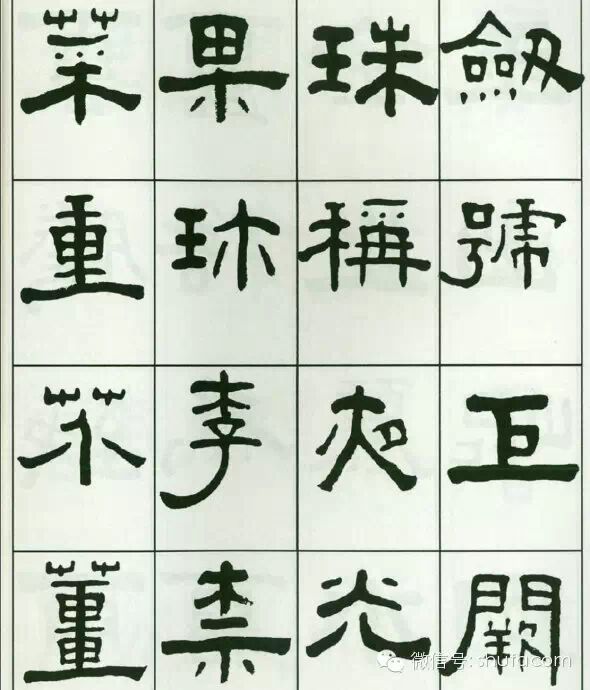 劒號巨闕
珠稱夜光
果珎李柰
菜重芥薑
微信号: